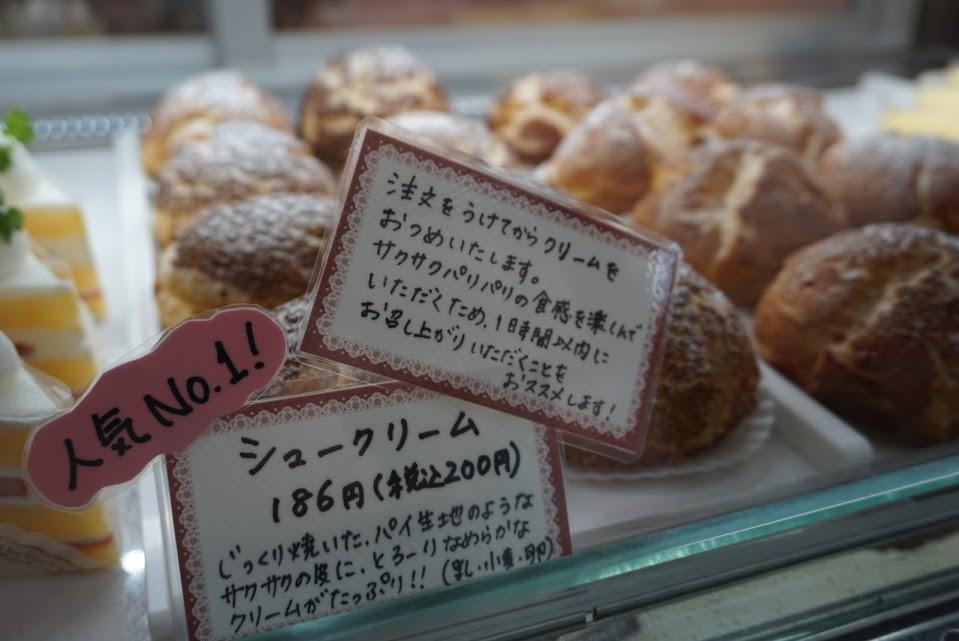 注文をうけてからクリームを
おつめいたします。
サクサクパリパリの食感を楽しんで
いただくため、1時間以内に
お召し上がりいただくことを
おススメします!
人気No.1!
シュークリーム
186円(税込200円)
じっくり焼いた、パイ生地のような
サクサクの皮に、とろーりなめらかな
クリームがたっぷり!! (乳・小麦・卵)